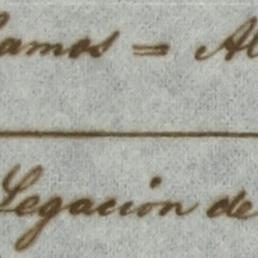 Ramos = Al
Legación de